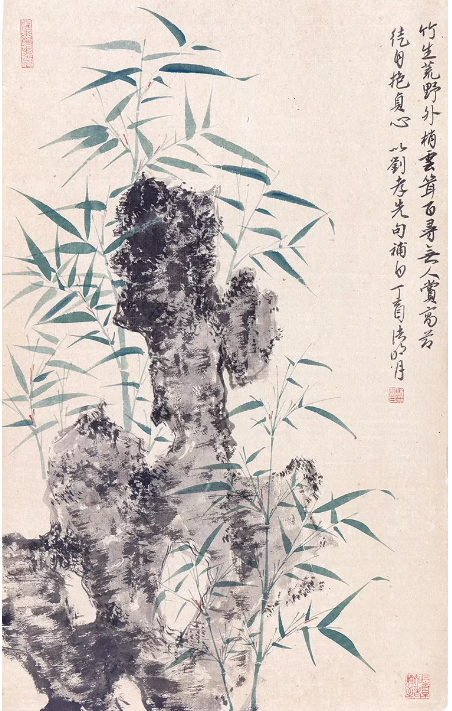 竹生荒野外梢雲聳百尋無人賞高节
徒自抱貞心 以劉孝先句補白 丁酉清明月